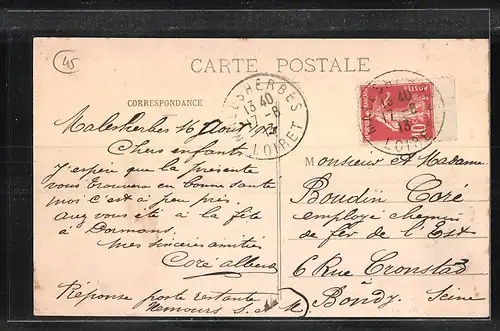 45
CARTE POSTALE
CORRESPONDANCE
MALESHERBES
13 40
17 - 8
13
LOIRET
10
Malesherbes 16 Août 1913
Chers enfants
J'espère que la présente
vous trouvera en bonne santé
moi c'est à peu près
avez vous été à la fête
à Dormans.
mes sincères amitiés
Coré Albert
Réponse poste restante
Nemours S. et M.
Monsieur et Madame
Boudin Coré
employé chemin
de fer de l'Est
6 Rue Cronstad
à Bondy. Seine